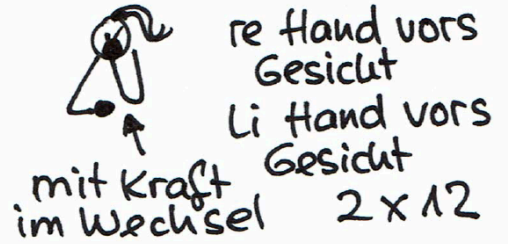 re Hand vors
Gesicht
Li Hand vors
Gesicht
2 x 12
mit Kraft
im Wechsel